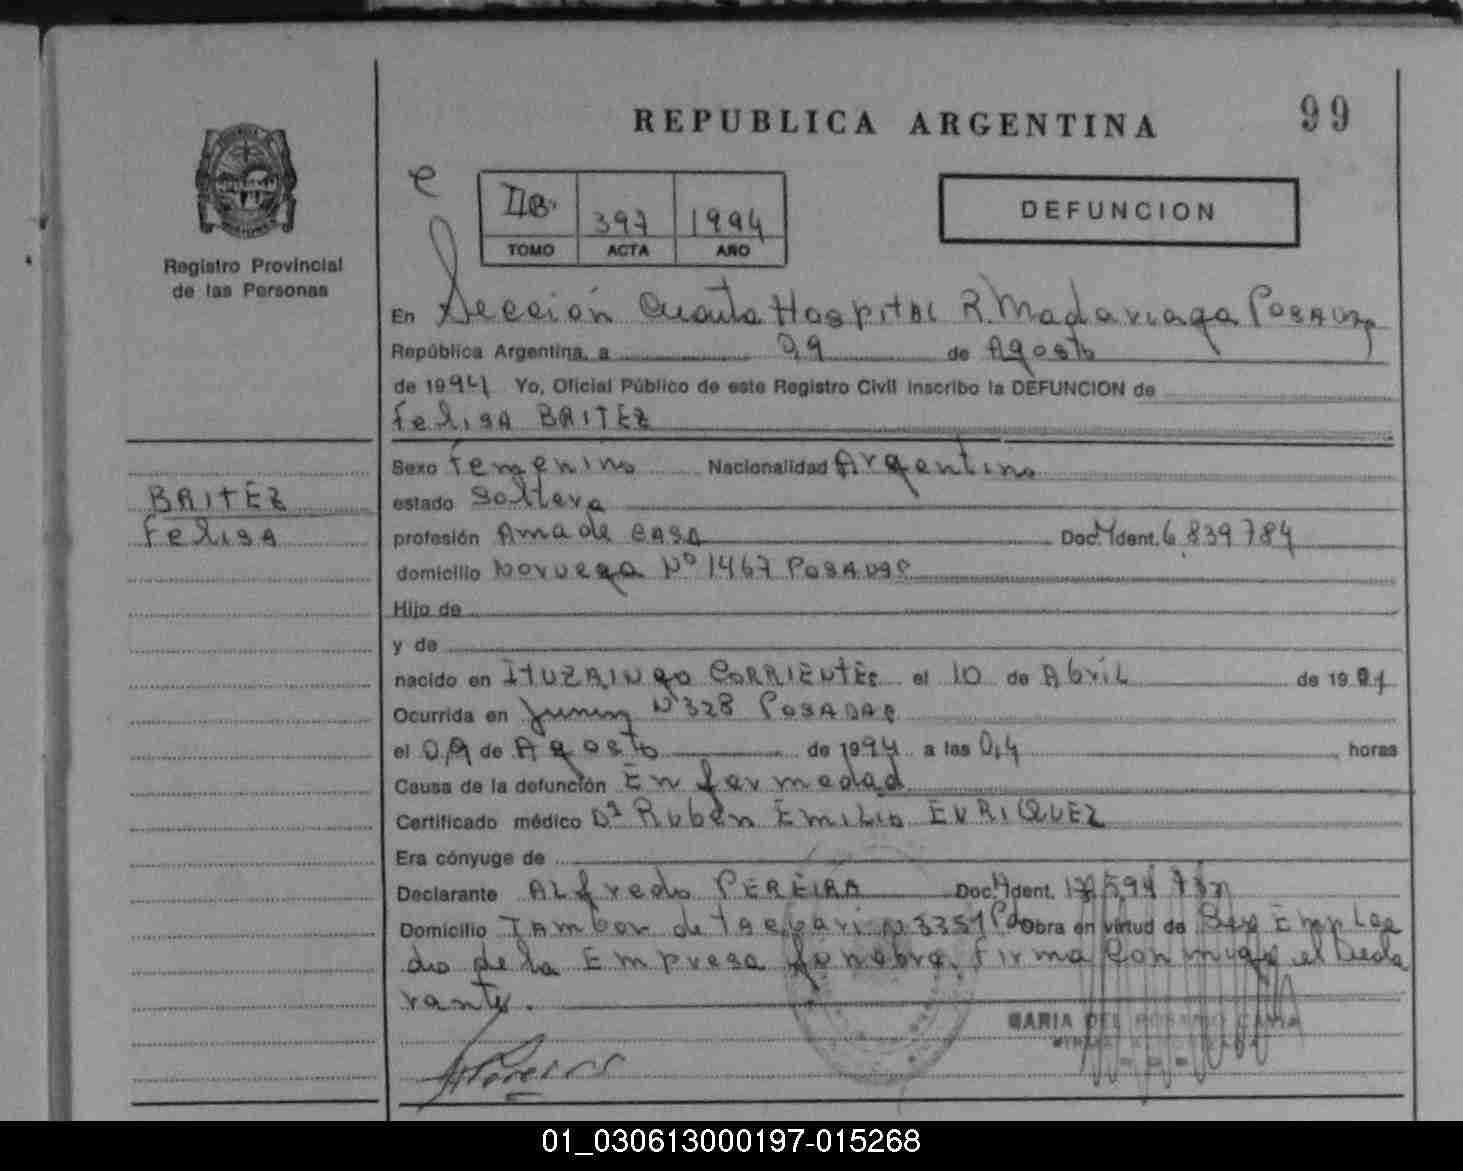 REPUBLICA ARGENTINA
99
e
IIB. 397 1994
TOMO ACTA AÑO
DEFUNCION
Registro Provincial
de las Personas
En Sección Cuarta Hospital R. Madariaga POSADAS
República Argentina, a 09 de Agosto
de 1994 Yo, Oficial Público de este Registro Civil inscribo la DEFUNCION de
Felisa BRITEZ
BRITEZ
Felisa
Sexo Femenino Nacionalidad Argentina
estado Soltera
profesión Ama de CASA Doc. Ident. 6.839784
domicilio Noruega Nº 1467 POSADAS
Hijo de
y de
nacido en ITUZAINGO CORRIENTES el 10 de Abril de 19
Ocurrida en Junin Nº 328 POSADAS
el 09 de Agosto de 1994 a las 04 horas
Causa de la defunción Enfermedad
Certificado médico Dr Ruben Emilio ENRIQUEZ
Era cónyuge de
Declarante Alfredo PEREIRA Doc. Ident.
Domicilio Tambor de Tacuari Nº 3351 Obra en virtud de Emplea
do de la Empresa funebre. Firma conmigo el Decla
rante.
MARIA DEL ROSARIO
01_030613000197-015268